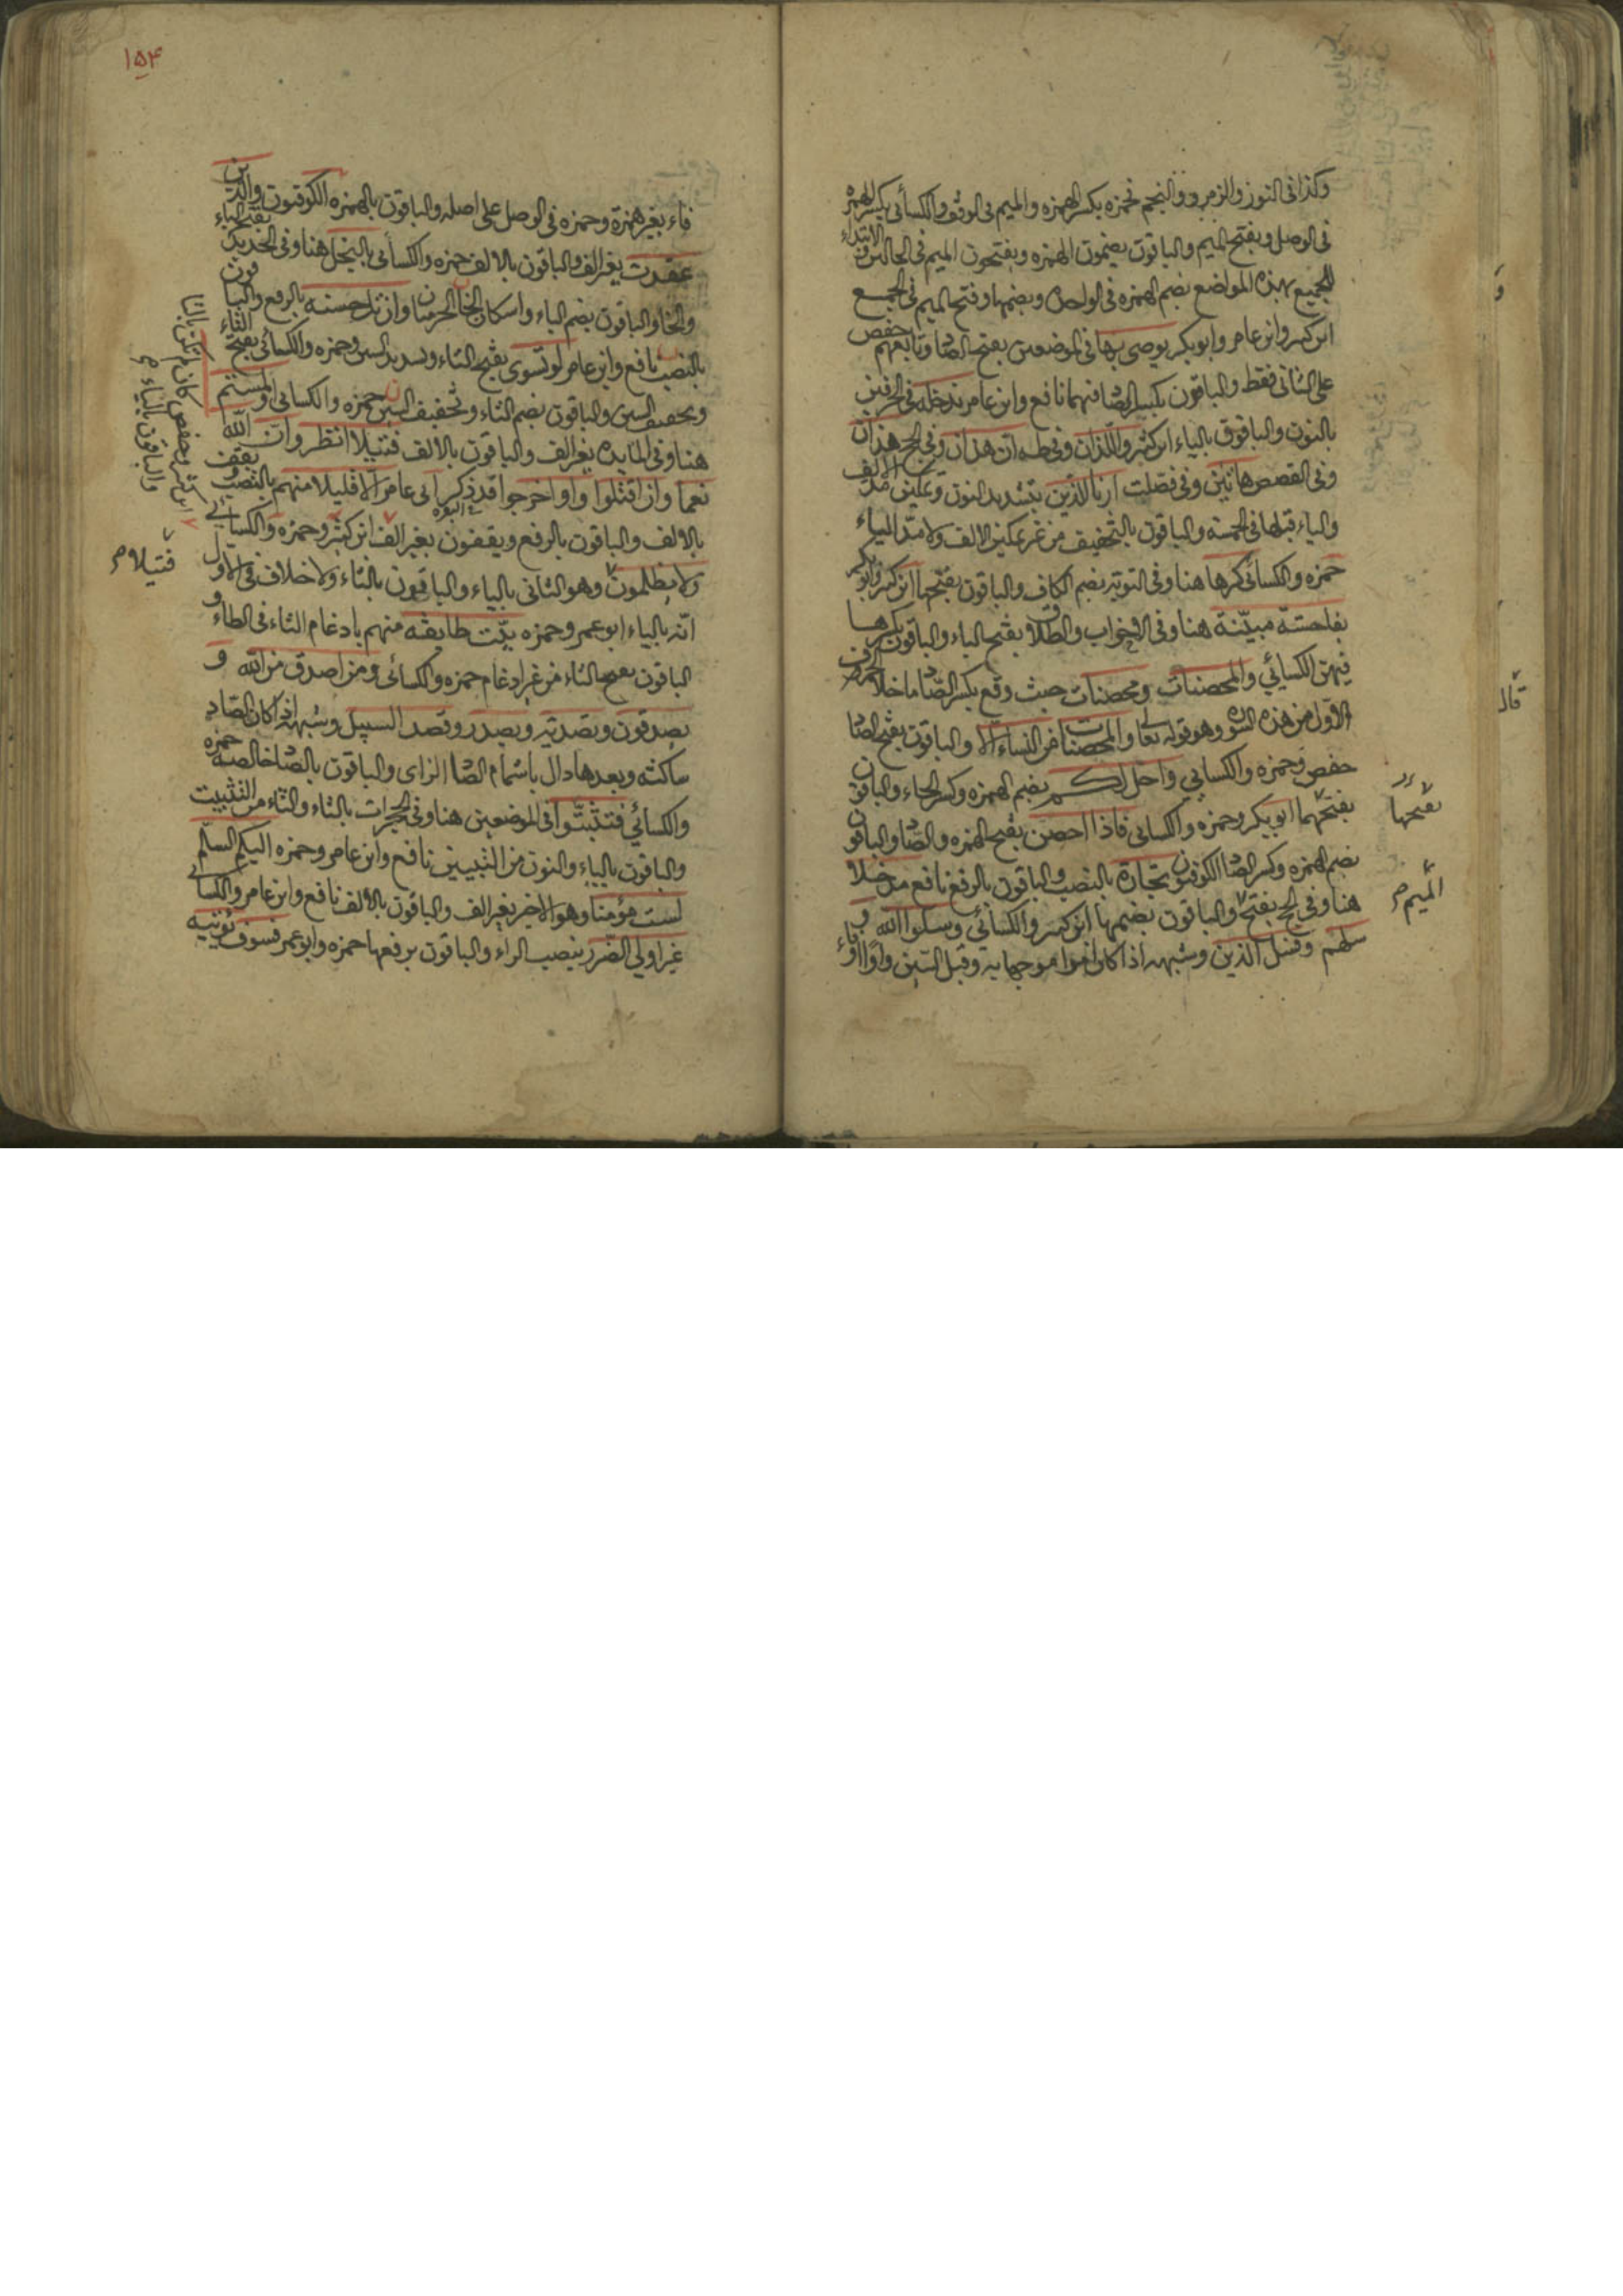 وكذا فى النور والزمر والنجم فحمزه بكسر الهمزه والميم فى الوقف والكسائى بكسر الهمزه
فى الوصل ويفتح الميم والباقون يضمون الهمزه ويفتحون الميم فى الحالين و الابتداء
للجميع بهذه المواضع بضم الهمزه فى الواحد وبضمها وفتح الميم فى الجمع
ابن كثير وابن عامر وابو بكر يوصى بها فى الموضعين بفتح الصاد وتابعهم حفص
على الثانى فقط والباقون بكسر الصاد فيهما نافع وابن عامر ندخله فى الحرفين
بالنون والباقون بالياء ابن كثير واللذان وفى طه ان هذان وفى الحج هذان
وفى القصص هاتين وفى فصلت ارنا الذين بتشديد النون وتمكين مد الالف
والياء قبلها فى الخمسه والباقون بالتخفيف من غير تمكين الالف ولا مد الياء
حمزه والكسائى كرها هنا وفى التوبه بضم الكاف والباقون بفتحها ابن كثير وابو بكر
بفاحشة مبينة هنا وفى الاحزاب والطلاق بفتح الياء والباقون بكسرها
فيهن الكسائي والمحصنات ومحصنات حيث وقع بكسر الصاد ما خلا الحرف
الاول من هذه السوره وهو قوله تعالى والمحصنات من النساء الا والباقون بفتح الصاد
حفص وحمزه والكسايي واحل لكم بضم الهمزه وكسر الحاء والباقون
بفتحهما ابو بكر وحمزه والكسائى فاذا احصن بفتح الهمزه والصاد والباقون
بضم الهمزه وكسر الصاد الكوفيون تجارة بالنصب والباقون بالرفع نافع مدخلا
هنا وفى الحج بفتح والباقون بضمها ابن كثير والكسائي وسلوا الله و
سلهم وفسل الذين وشبهه اذا كان امرا مواجها به وقبل السين واو او
بفتحها
الميم
قال
١٥٤
فاء بغير همزة وحمزه فى الوصل على اصله والباقون بالهمزه الكوفيون والذين
عقدت بغير الف والباقون بالالف حمزه والكسائى بالبخل هنا وفى الحديد بفتح الباء
والخا والباقون بضم الباء واسكان الخا الحرميان وان تك حسنه بالرفع والباقون
بالنصب نافع وابن عامر لو تسوى بفتح التاء وتشديد السين وحمزه والكسائى بفتح التاء
وتخفيف السين والباقون بضم التاء وتخفيف السين حمزه والكسائى او لمستم
هنا وفى المايده بغير الف والباقون بالالف فتيلا انظر وان الله
نعما وان اقتلوا واو اخرجوا قد ذكر فى البقره ابن عامر الا قليلا منهم بالنصب و يقف
بالالف والباقون بالرفع ويقفون بغير الف ابن كثير وحمزه والكسايي
ولا يظلمون وهو الثانى بالياء والباقون بالتاء ولا خلاف فى الاول
انه بالياء ابو عمر وحمزه بيت طايفه منهم بادغام التاء فى الطاء و
الباقون بفتح التاء من غير ادغام حمزه والكسائى ومن اصدق من الله و
يصدفون وتصديه ويصدر وقصد السبيل وشبهه اذا كان الصاد
ساكنه وبعدها دال باشمام الصاد الزاى والباقون بالصاد خالصه حمزه
والكسائي فتثبتوا فى الموضعين هنا وفى الحجرات بالثاء والتاء من التثبيت
والباقون بالياء والنون من التبيين نافع وابن عامر وحمزه اليكم السلم
لست مؤمنا وهو الاخير بغير الف والباقون بالالف نافع وابن عامر والكسائى
غير اولي الضرر بنصب الراء والباقون برفعها حمزه وابو عمر فسوف نؤتيه
ابن كثير وحفص كان لم تكن بالتا
والباقون بالياء
فتيلا